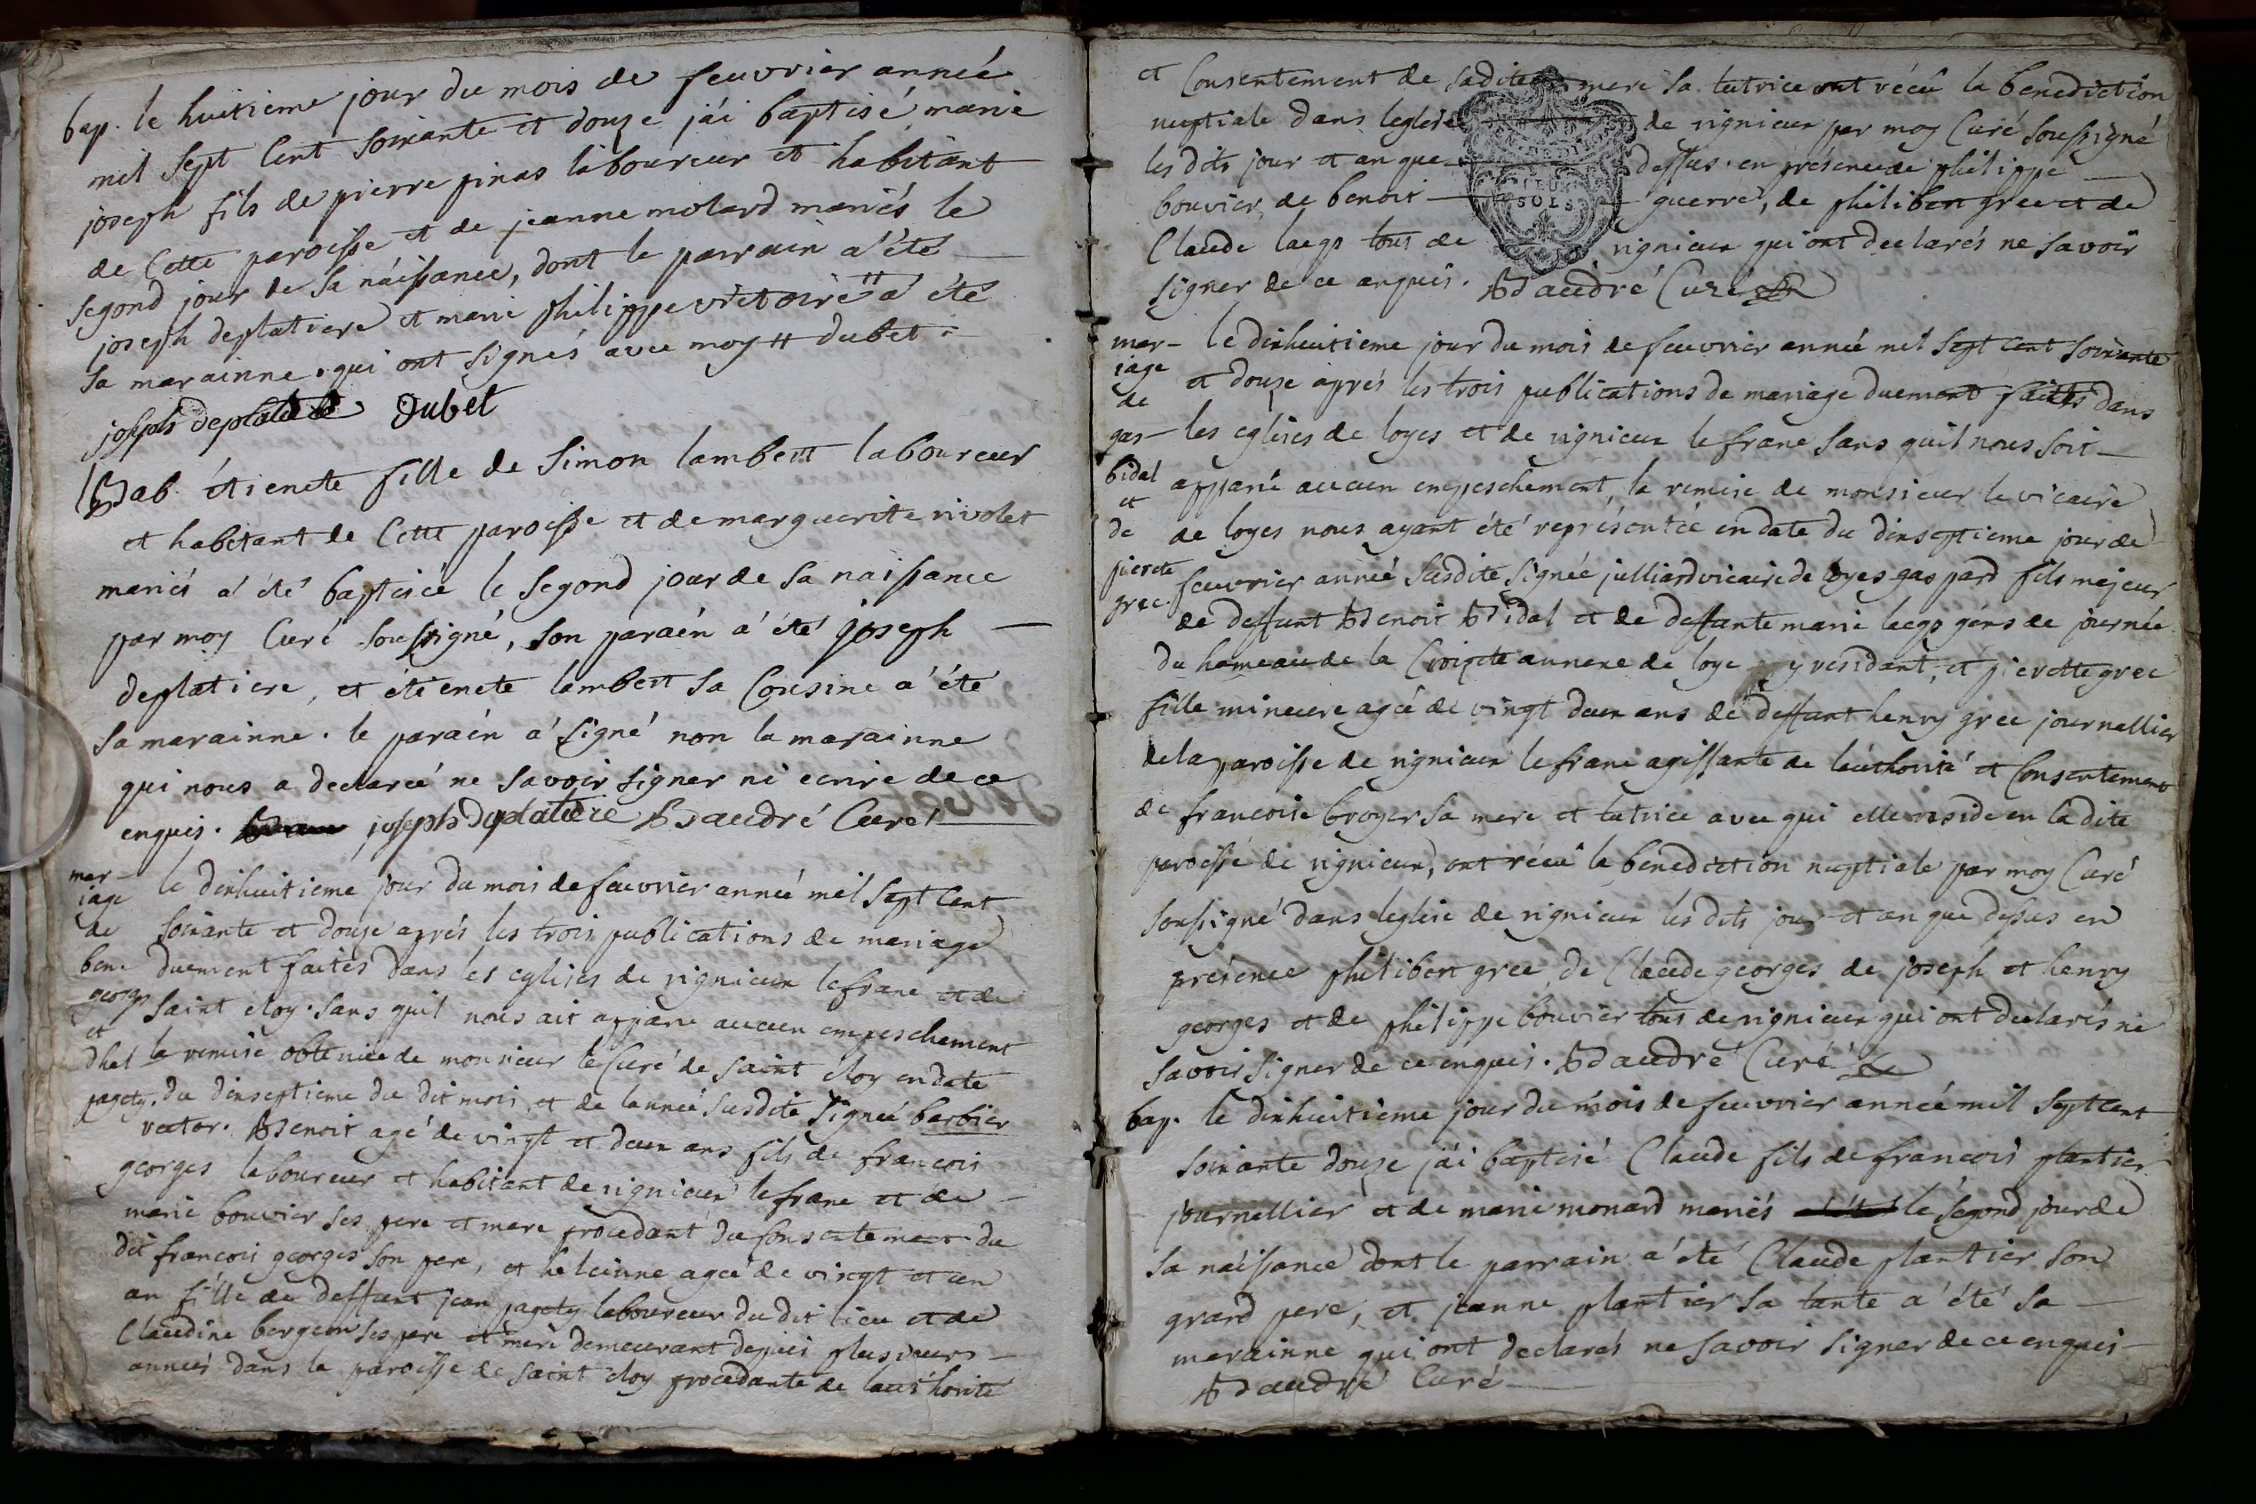 bap. le huitieme jour du mois de feuvrier année
mil sept Cent soixante et douze j'ái baptisé marie
joseph fils de pierre pinas laboureur et habitant
de Cette paroisse et de jeanne molard mariés le
segond jour de sa náissance, dont le parrain a'été
joseph deplatiere et marie philippe victoire # a' été
sa marainne. qui ont signés avec moy # dubet
joseph deplatiere Dubet
Bap. étienete fille de Simon lambert laboureur
et habitant de Cette paroisse et de marguerite rivolet
mariés a' été baptisée le segond jour de sa naissance
par moy Curé soussigné, son paraén a' été joseph
deplatiere, et étienete lambert sa Cousine a' été
sa marainne. le paraén a' signé non la marainne
qui nous a declareé ne savoir signer ni ecrire de ce
enquis. joseph Deplatiere Baudré Curé
mar-
iage
de
ben.
georges
et
dhel
pagety.
le dixhuitieme jour du mois de feuvrier année mil sept Cent
soixante et douze aprés les trois publications de mariage
duement faites dans les eglises de rignieux le franc et de
saint eloy. sans quil nous ait apparu aucun empeschement
la remise obtenüe de monsieur le Curé de saint eloy en date
du dixseptieme du dit mois, et de lanneé susdite signeé barbier
rector. Benoit agé de vingt et deux ans fils de francois
georges laboureur et habitant de rignieux le franc et de
marie bouvier ses pere et mere procedant du Consentement du
dit francois georges son pere, et heleinne ageé de vingt et un
an fille de deffunt jean pagety laboureur du dit lieu et de
Claudine bergeon ses pere et mere demeurant depuis plusieurs
années dans la paroisse de saint eloy procedante de lauthorité
et Consentement de sadite mere sa tutrice ont récéu la benediction
nuptiale dans leglise de rignieux par moy Curé soussigné
les dits jour et an que dessus. en présence de philippe
bouvier, de benoit guerre, de philibert gree et de
Claude laegs tous de rignieux qui ont declarés ne savoir
signer de ce anquis. Baudré Curé
DEUX
SOLS
mar-
iage
de
gas-
bidal
et
de
pierete
grec.
le dixhuitieme jour du mois de feuvrier année mil sept cent soixante
et douze aprés les trois publications de mariage duement faites dans
les eglises de loyes et de rignieux le franc sans quil nous soit
apparu aucun empeschement, la remise de monsieur le vicaire
de loyes nous ayant été représentée en date du dixseptieme jour de
feuvrier année susdite signée julliard vicaire de loyes gaspard fils majeur
de deffunt Benoit Bidal et de deffunte marie laegs géns de journée
du hameau de la Croisete annexe de loye y residant, et pierette gree
fille mineure ageé de vingt deux ans de deffunt henry gree journallier
de la paroisse de rignieux le franc agissante de lauthorité et Consentement
de francoise broyer sa mere et tutrice avec qui elle reside en la dite
paroisse de rignieux, ont récéu la bénediction nuptiale par moy Curé
soussigné dans leglise de rignieux lés dits jour et an que dessus en
presence philibert gree, de Claude georges de joseph et henry
georges et de philippe bouvier tous de rignieux qui ont declarés ne
savoir signer de ce enquis. Baudré Curé
bap. le dixhuitieme jour du mois de feuvrier année mil sept Cent
soixante douze j'ái baptisé Claude fils de francois plantier
journallier et de marie monard mariés le segond jour de
sa náissance dont le parrain a' été Claude plantier son
grand pere, et jeanne plantier sa tante a' été sa
marainne qui ont declarés ne savoir signer de ce enquis
Baudré Curé